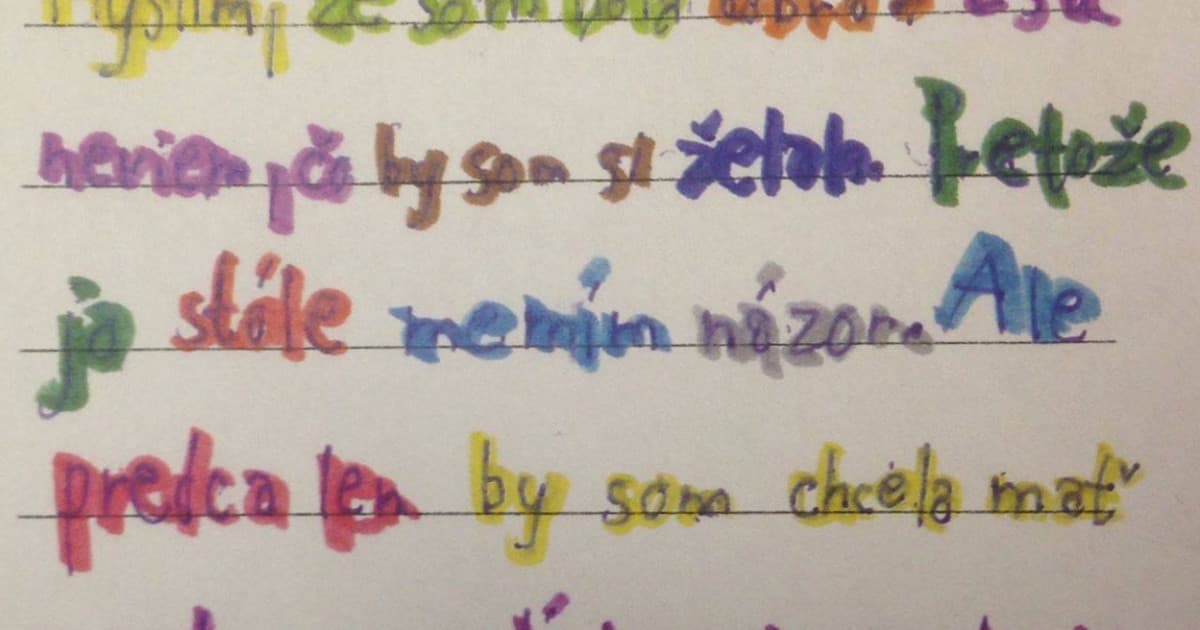 Myslím, že som bola dobrá
neviem, čo by som si želala. Pretože
ja stále mením názor. Ale
predca len by som chcela mať